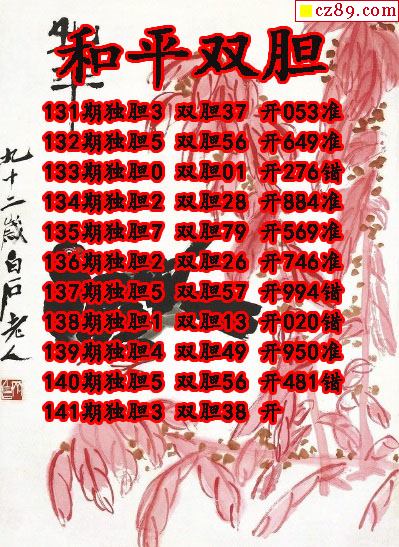 cz89.com
和平双胆
131期独胆3 双胆37 开053准
132期独胆5 双胆56 开649准
133期独胆0 双胆01 开276错
134期独胆2 双胆28 开884准
135期独胆7 双胆79 开569准
136期独胆2 双胆26 开746准
137期独胆5 双胆57 开994错
138期独胆1 双胆13 开020错
139期独胆4 双胆49 开950准
140期独胆5 双胆56 开481错
141期独胆3 双胆38 开
九十二岁白石老人